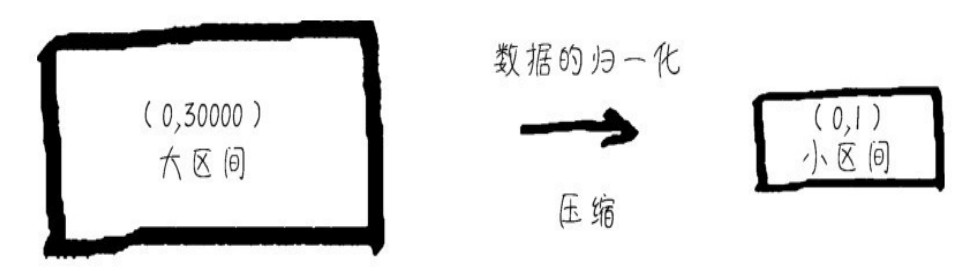 (0,30000)
大区间
数据的归一化
压缩
(0,1)
小区间